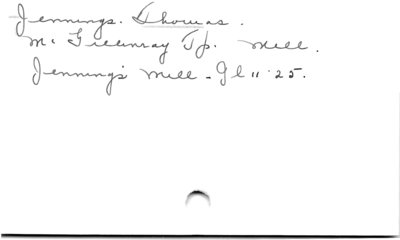 Jennings. Thomas.
Mc Gillivray Tp. Mill.
Jennings Mill - Gl 11 25.